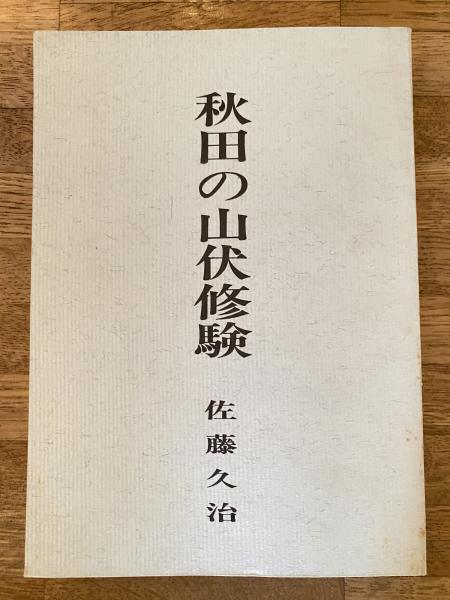 秋田の山伏修験
佐藤久治